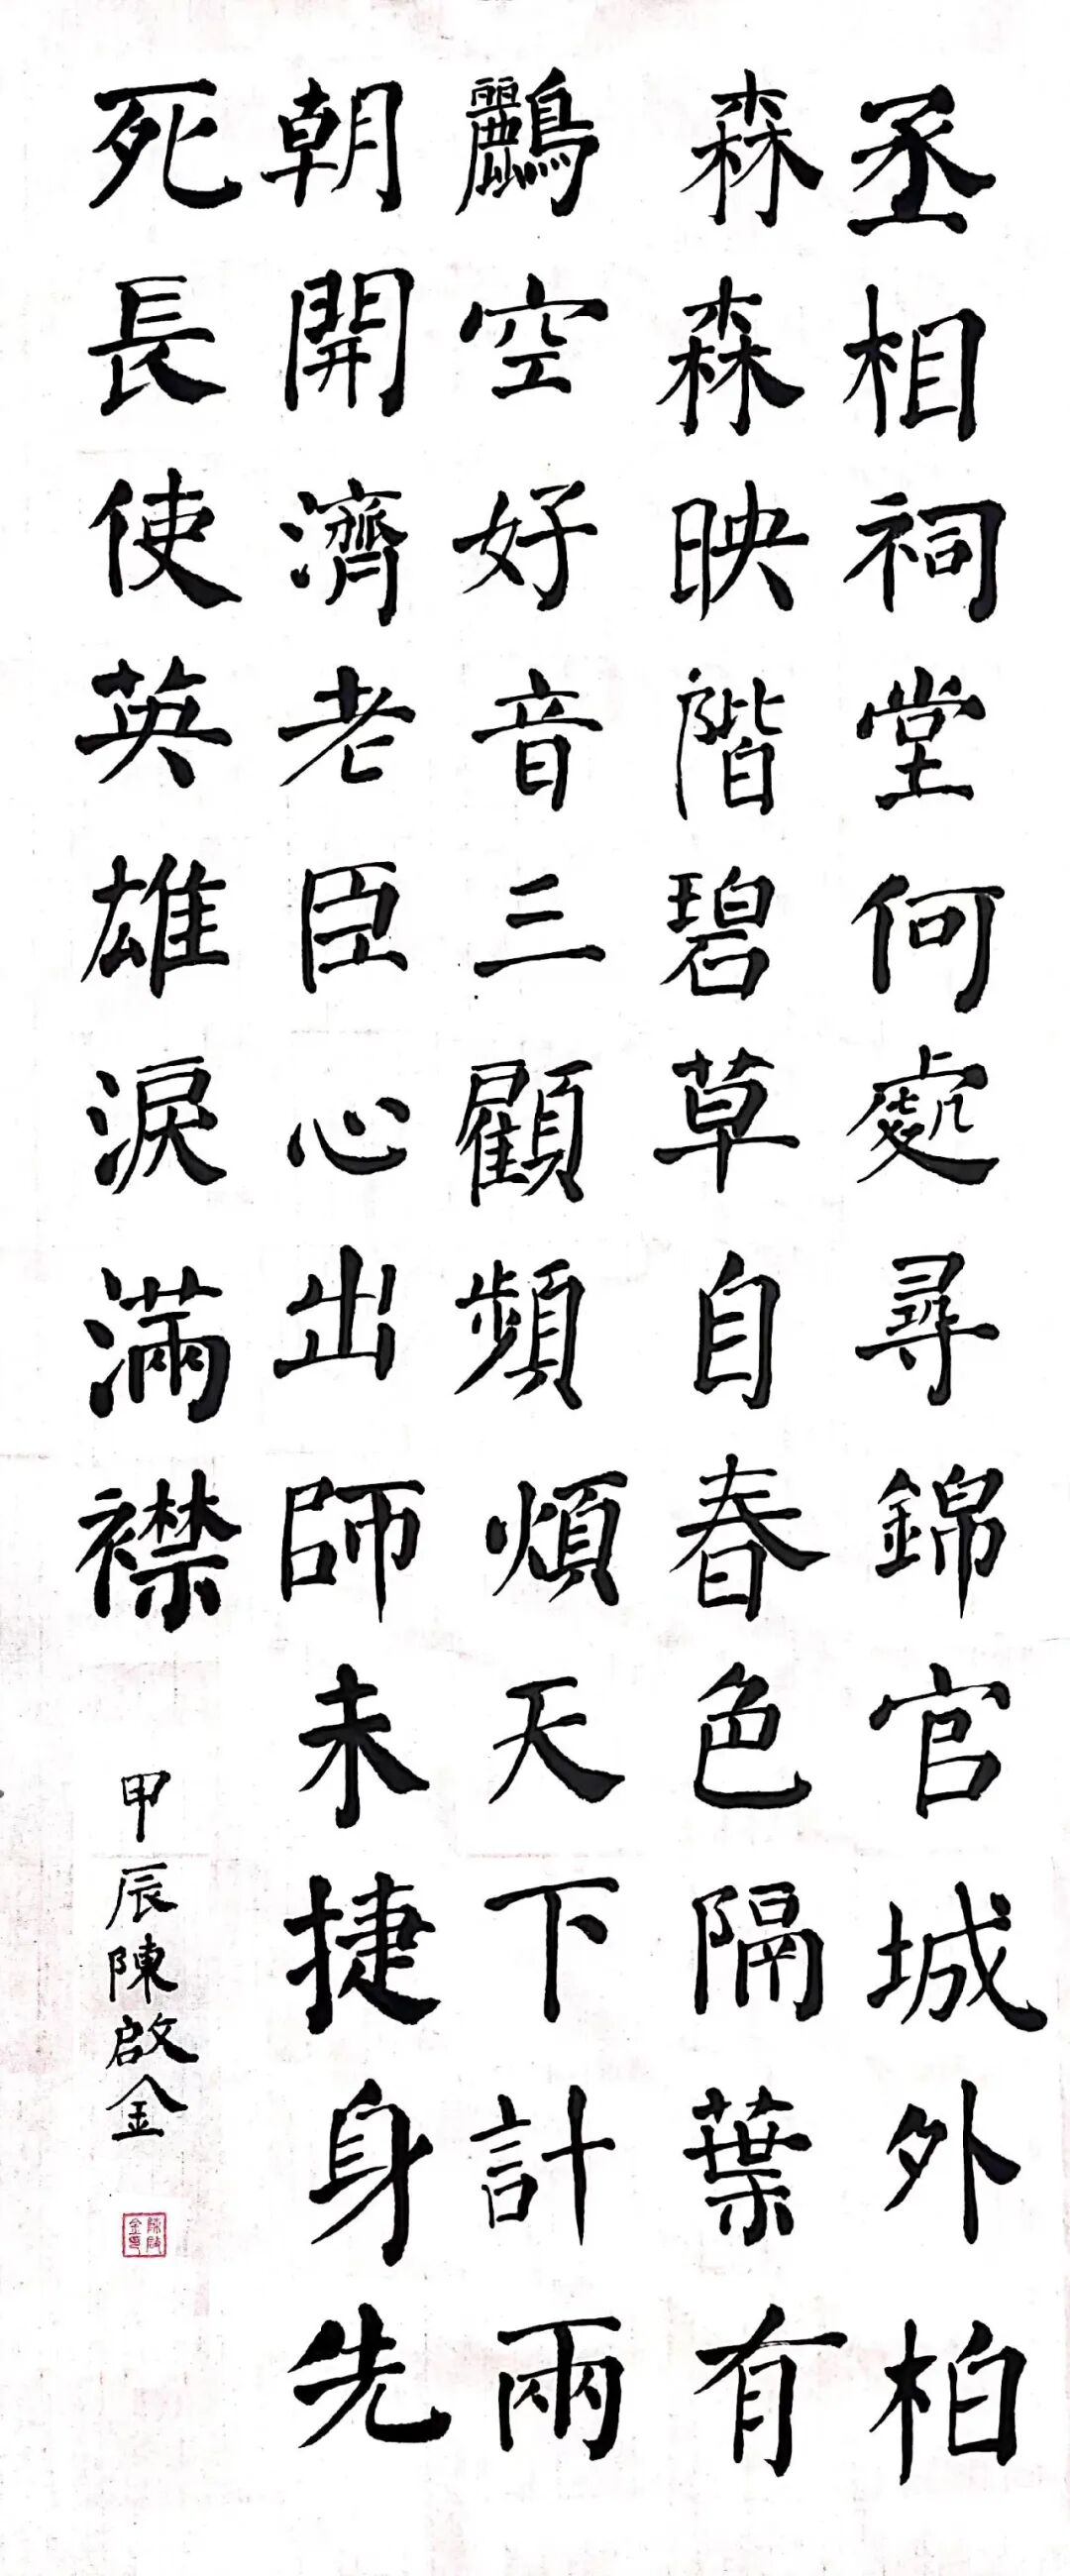 丞相祠堂何處尋錦官城外柏
森森映階碧草自春色隔葉有
鸝空好音三顧頻煩天下計兩
朝開濟老臣心出師未捷身先
死長使英雄淚滿襟
甲辰陳啟金
陳啟金印